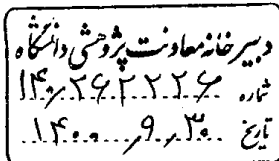 دبیرخانه معاونت پژوهشی دانشگاه
شماره ۱۴۰/۲۶۲۲۲۶
تاریخ ۱۴۰۰/۹/۳۰